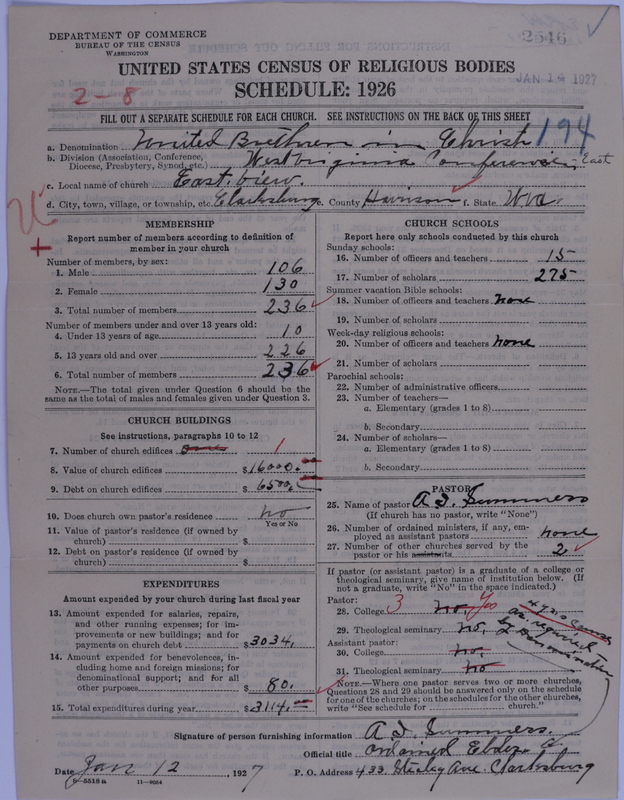 DEPARTMENT OF COMMERCE
BUREAU OF THE CENSUS
WASHINGTON
2546
JAN 14 1927
UNITED STATES CENSUS OF RELIGIOUS BODIES
SCHEDULE: 1926
2-8
FILL OUT A SEPARATE SCHEDULE FOR EACH CHURCH. SEE INSTRUCTIONS ON THE BACK OF THIS SHEET
194
a. Denomination United Brethren in Christ
b. Division (Association, Conference, Diocese, Presbytery, Synod, etc.) West Virginia Conference, East
c. Local name of church East view.
d. City, town, village, or township, etc. Clarksburg e. County Harrison f. State W va.
MEMBERSHIP
Report number of members according to definition of member in your church
Number of members, by sex:
1. Male 106
2. Female 130
3. Total number of members 236
Number of members under and over 13 years old:
4. Under 13 years of age 10
5. 13 years old and over 226
6. Total number of members 236
NOTE.—The total given under Question 6 should be the same as the total of males and females given under Question 3.
CHURCH BUILDINGS
See instructions, paragraphs 10 to 12
7. Number of church edifices one 1
8. Value of church edifices $16000.
9. Debt on church edifices $6500.
10. Does church own pastor's residence no
Yes or No
11. Value of pastor's residence (if owned by church) $
12. Debt on pastor's residence (if owned by church) $
EXPENDITURES
Amount expended by church during last fiscal year
13. Amount expended for salaries, repairs, and other running expenses; for improvements or new buildings; and for payments on church debt $3034.
14. Amount expended for benevolences, including home and foreign missions; for denominational support; and for all other purposes $80.
15. Total expenditures during year $3114.
CHURCH SCHOOLS
Report here only schools conducted by this church
Sunday schools:
16. Number of officers and teachers 15
17. Number of scholars 275
Summer vacation Bible schools:
18. Number of officers and teachers none
19. Number of scholars
Week-day religious schools:
20. Number of officers and teachers none
21. Number of scholars
Parochial schools:
22. Number of administrative officers
23. Number of teachers—
a. Elementary (grades 1 to 8)
b. Secondary
24. Number of scholars—
a. Elementary (grades 1 to 8)
b. Secondary
PASTOR
25. Name of pastor A. I. Summers
(If church has no pastor, write "None")
26. Number of ordained ministers, if any, employed as assistant pastors none
27. Number of other churches served by the pastor or his assistants 2
If pastor (or assistant pastor) is a graduate of a college or theological seminary, give name of institution below. (If not a graduate, write "No" in the space indicated.)
Pastor:
28. College 3 no. Yes
29. Theological seminary no.
as reported by
Assistant pastor:
30. College no.
31. Theological seminary no
NOTE.—Where one pastor serves two or more churches, Questions 28 and 29 should be answered only on the schedule for one of the churches; on the schedules for the other churches, write "See schedule for church."
Signature of person furnishing information A. I. Summers.
Official title ordained Elder
Date Jan 12, 1927 P. O. Address 433 Stealey Ave. Clarksburg
8-5518a 11-9064